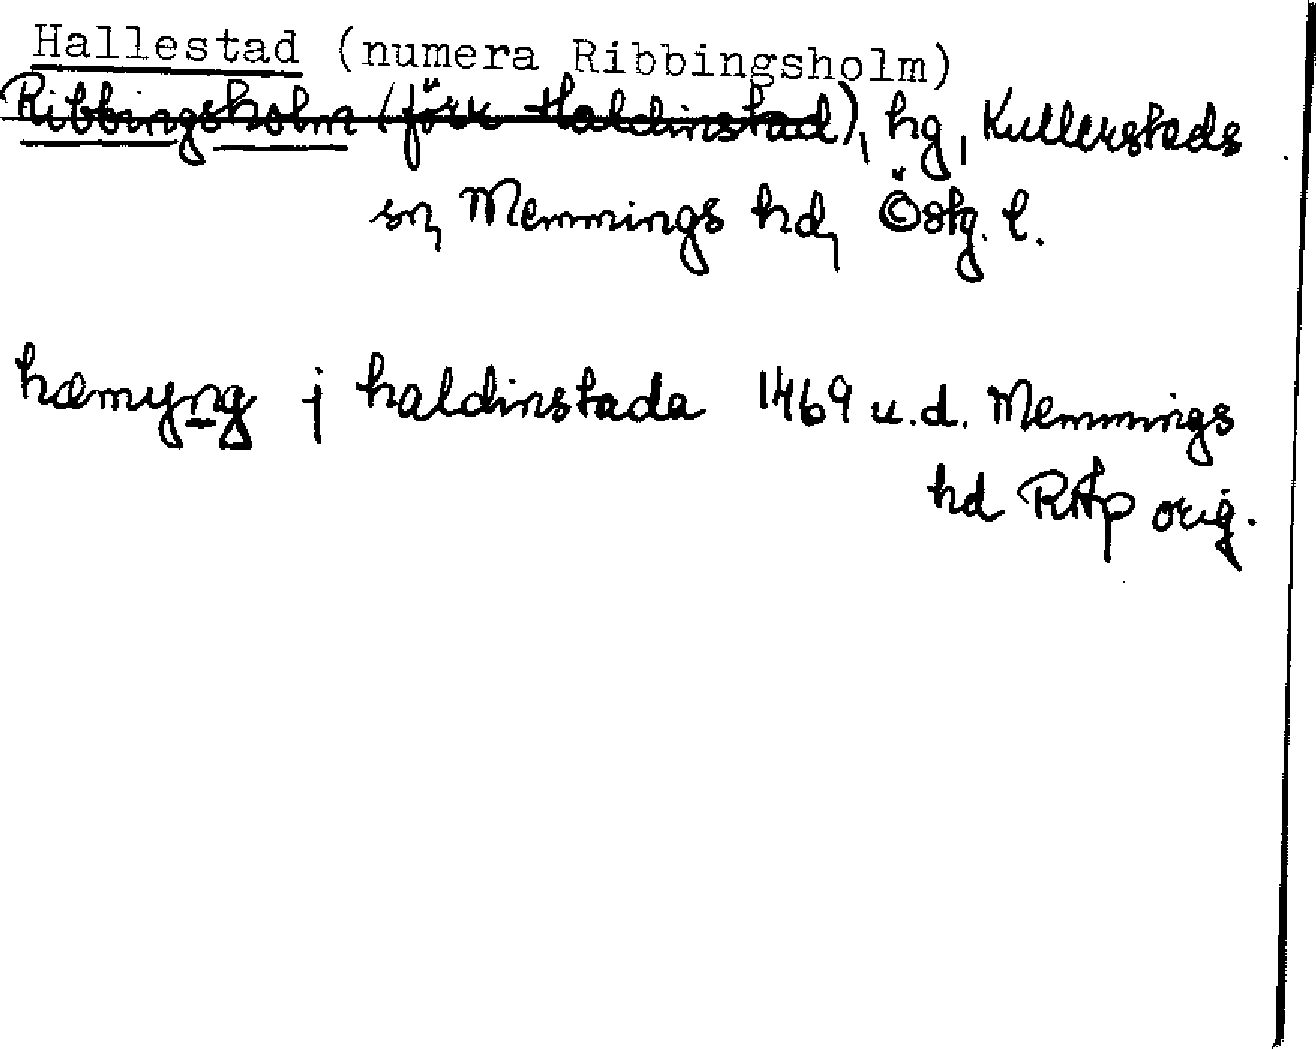 Hallestad (numera Ribbingsholm)
Ribbingsholm (förr Haldinstad), hg, Kullerstads
sn, Memmings hd, Östg. l.
hæmyng j haldinstada 1469 u.d. Memmings
hd RAp orig.